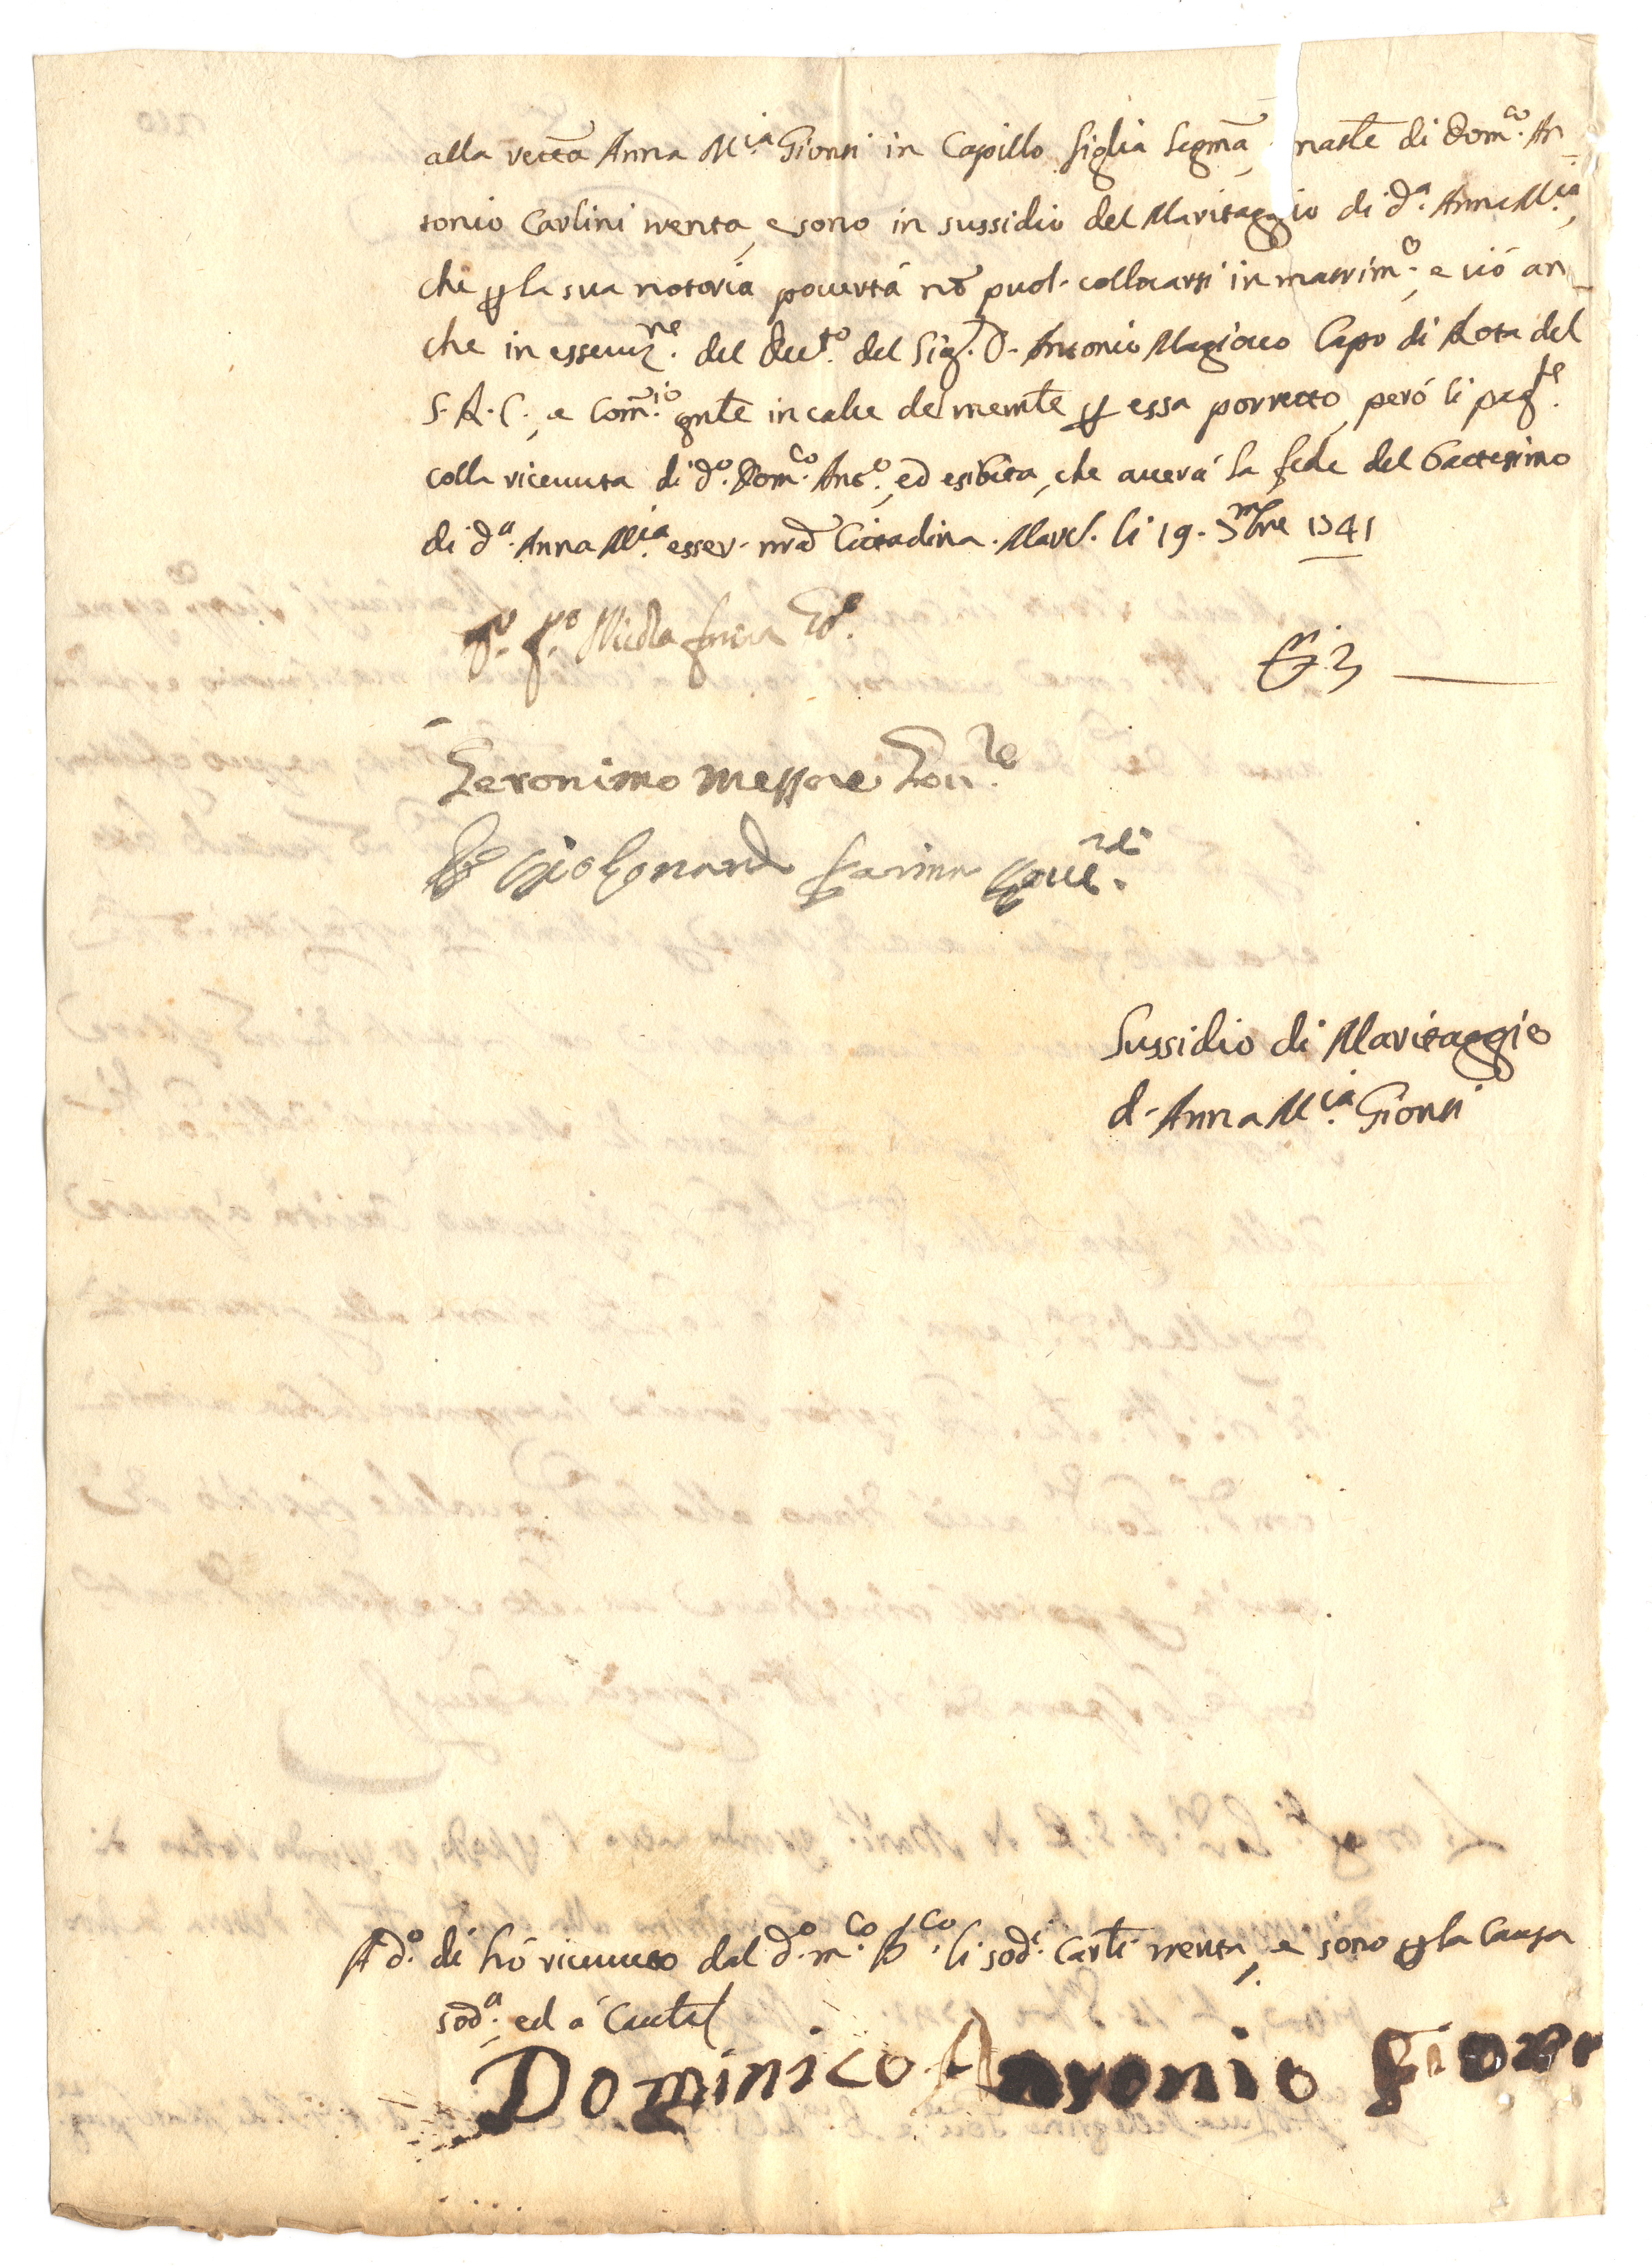 alla retta Anna M.ia Gionti in Capillo figlia legma naile di Dom.co An
tonio Carlini trenta, e sono in sussidio del Maritaggio di d.a Anna M.ia,
che p la sua notoria povertá nõ puol collocarsi in matrim.o, e ció an
che in essecuz.ne del Dec.to del Sig.r D. Antonio Magiocco Capo di Rota del
S. R. C., e Com.rio gnte in calce del memle p essa porretto, peró li pag.te
colla ricevuta di d.o Dom.co Ant.o, ed esibita, che averá la fede del Battesimo
di d.a Anna M.ia esser nra Cittadina. Marcl. li 19. 1741
Nicola
Geronimo Messore
Sussidio di Maritaggio
d. Anna M.ia Gionti
A d.o dì hó ricevuto dal d.o m.co li sod.i Carli trenta, e sono p la Causa
sod.a, ed á Cautal
Dominico Antonio Gion